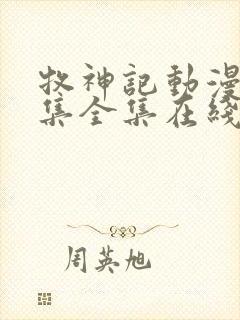 牧神記動漫
集全集在綫
周英旭